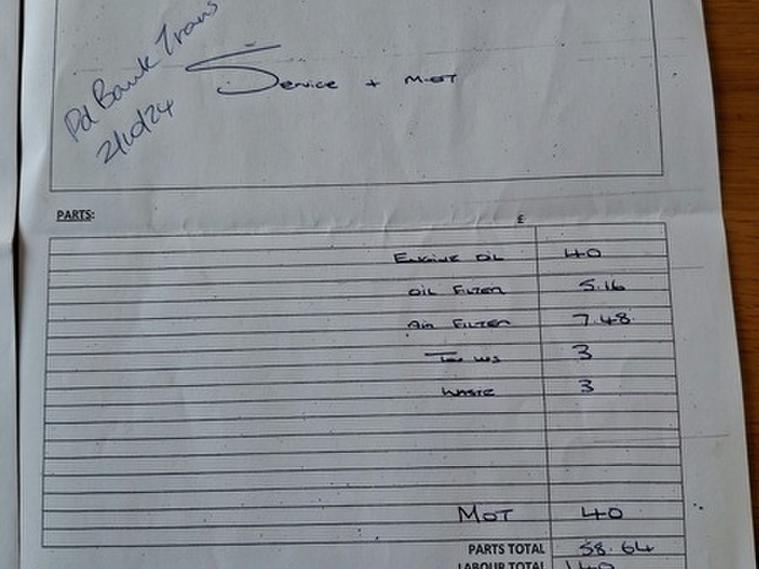 Pd Bank Trans
2/10/24
Service + MOT
PARTS:
£
ENGINE OIL 40
OIL FILTER 5.16
AIR FILTER 7.48
3
WASTE 3
MOT 40
PARTS TOTAL 58.64
LABOUR TOTAL 140